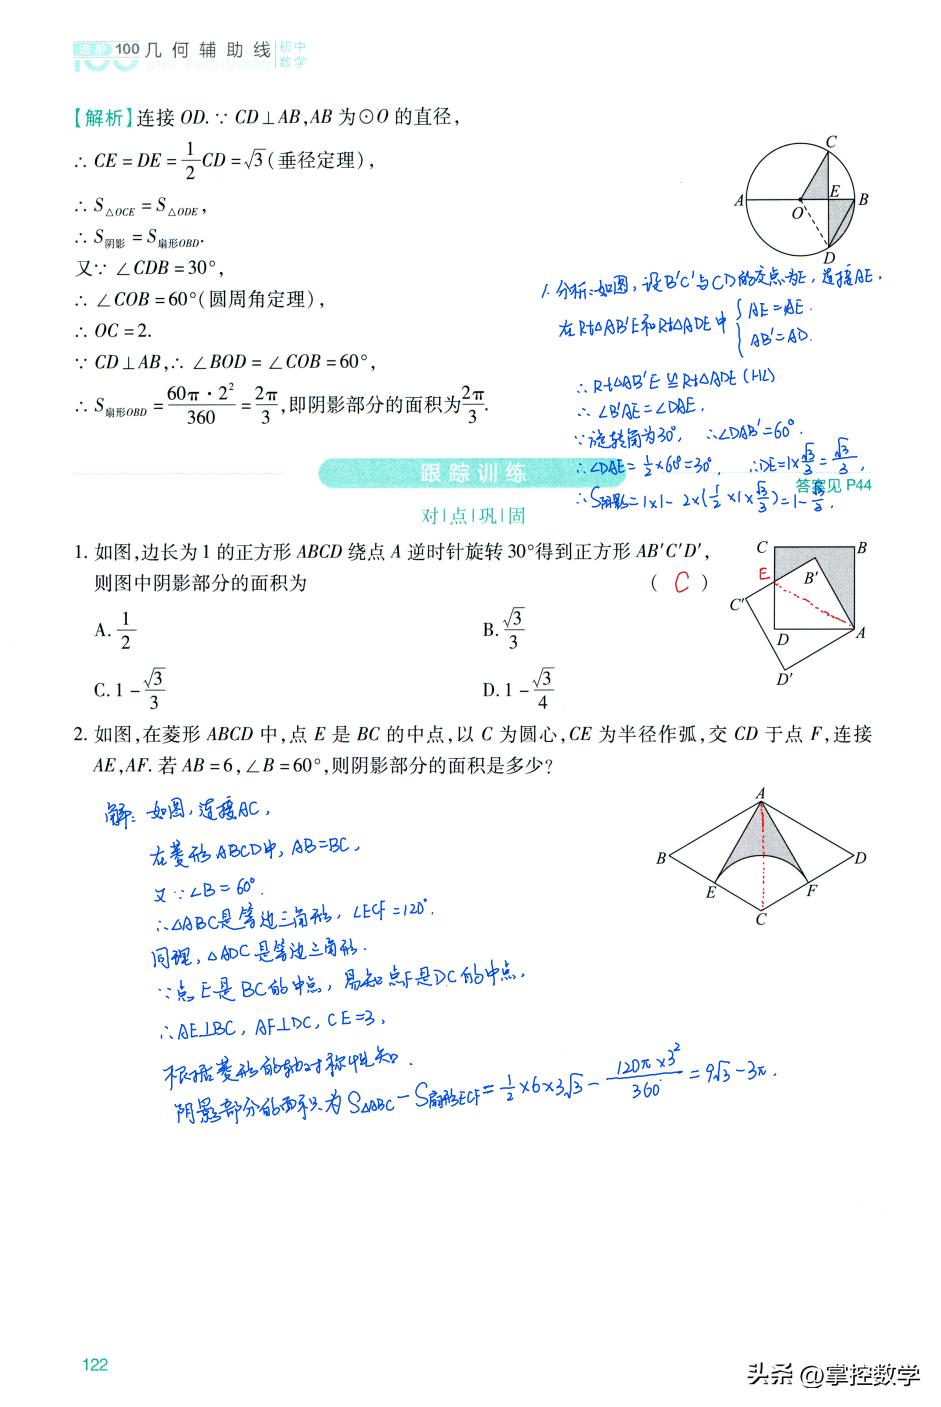 进阶100几何辅助线 初中数学
【解析】连接 OD.∵ CD⊥AB,AB 为⊙O 的直径,
∴ CE = DE = 1/2 CD = √3(垂径定理),
∴ S△OCE = S△ODE,
∴ S阴影 = S扇形OBD.
又∵ ∠CDB = 30°,
∴ ∠COB = 60°(圆周角定理),
∴ OC = 2.
∵ CD⊥AB,∴ ∠BOD = ∠COB = 60°,
∴ S扇形OBD = 60π·2²/360 = 2π/3,即阴影部分的面积为2π/3.
C
A
E
B
O
D
1.分析:如图,设B'C'与CD的交点为E,连接AE,
在Rt△AB'E和Rt△ADE中 { AE=AE. AB'=AD.
∴Rt△AB'E≌Rt△ADE(HL)
∴∠B'AE=∠DAE,
∵旋转角为30°, ∴∠DAB'=60°.
∴∠DAE=1/2×60°=30°, ∴DE=1×√3/3=√3/3,
∴S阴影=1×1-2×(1/2×1×√3/3)=1-√3/3.
跟踪训练
答案见 P44
对|点|巩|固
1. 如图,边长为 1 的正方形 ABCD 绕点 A 逆时针旋转 30°得到正方形 AB'C'D',
则图中阴影部分的面积为 ( C )
A. 1/2 B. √3/3
C. 1 - √3/3 D. 1 - √3/4
C
B
E
B'
C'
D
A
D'
2. 如图,在菱形 ABCD 中,点 E 是 BC 的中点,以 C 为圆心,CE 为半径作弧,交 CD 于点 F,连接
AE,AF. 若 AB = 6,∠B = 60°,则阴影部分的面积是多少?
A
B
D
E
F
C
解:如图,连接AC,
在菱形ABCD中,AB=BC,
又∵∠B=60°.
∴△ABC是等边三角形,∠ECF=120°.
同理,△ADC是等边三角形.
∵点E是BC的中点,易知点F是DC的中点,
∴AE⊥BC,AF⊥DC,CE=3,
根据菱形的轴对称性知.
阴影部分的面积为S△ABC-S扇形ECF=1/2×6×3√3-120π×3²/360=9√3-3π.
122
头条 @掌控数学